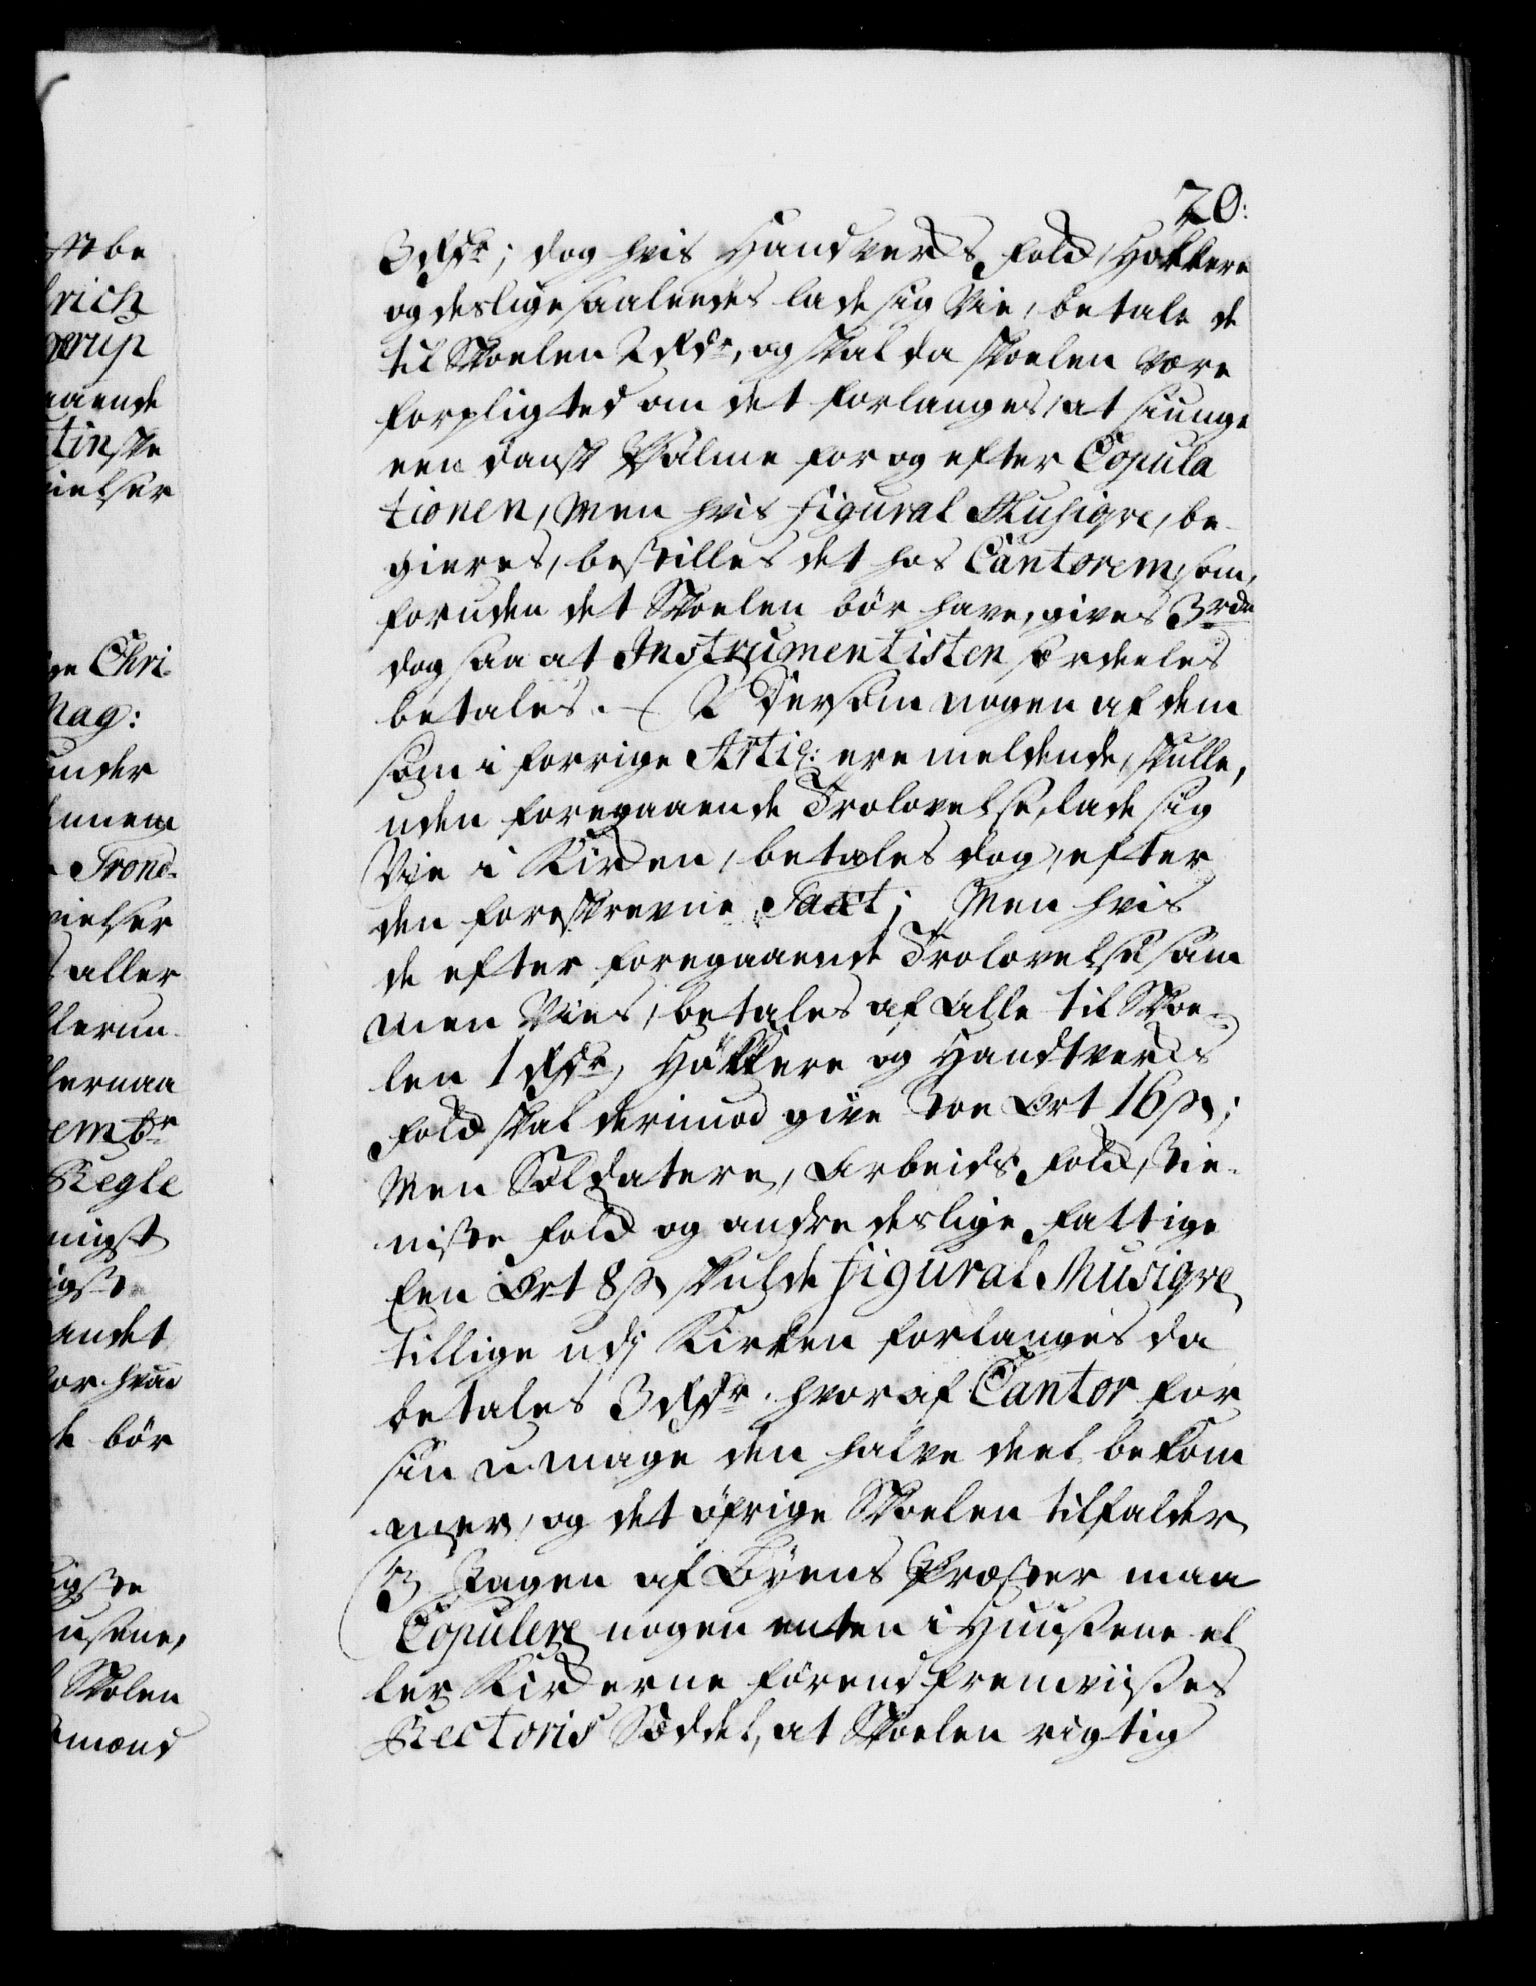 20:
3 Rdr; dog hvis Handverks folk, Høkkere
og deslige saaleedes lade sig Vie, betale de
til Skoelen 2 Rdr, og skal da skoelen være
forpligted om det forlanges, at siunge
een dansk Psalme for og efter Copula
tionen, Men hvis figural Musiqve, be-
gieres, bestilles det hos Cantorem, som,
foruden det Skoelen bør have, gives 3 rdr
dog saa at Instrumentisten særdeeles
betales. 2 Dersom nogen af dem
som i forrige Artic: ere meldende, skulle,
uden foregaaende Trolovelse, lade sig
Vie i Kirken, betales dog, efter
den foreskrevne Taxt; Men hvis
de efter foregaaende Trolovelse sam
men Vies, betales af Alle til Skoe-
len 1 Rdr, Høkkere og Handtverks
folk skal derimod give Toe Ort 16 s;
Men Soldatere, Arbeids folk, Tie-
niste folk og andre deslige fattige
Een Ort 8 s skulde figural Musiqve
tillige udj Kirken forlanges da
betales 3 Rdr. hvoraf Cantor for
sin u-mage den halve deel bekom
mer, og det øfrige Skoelen tilfalder
3 Ingen af Byens Præster maa
Copulere nogen enten i Huusene el
ler Kirkerne førend fremviises
Rectoris Seddel, at Skoelen rigtig